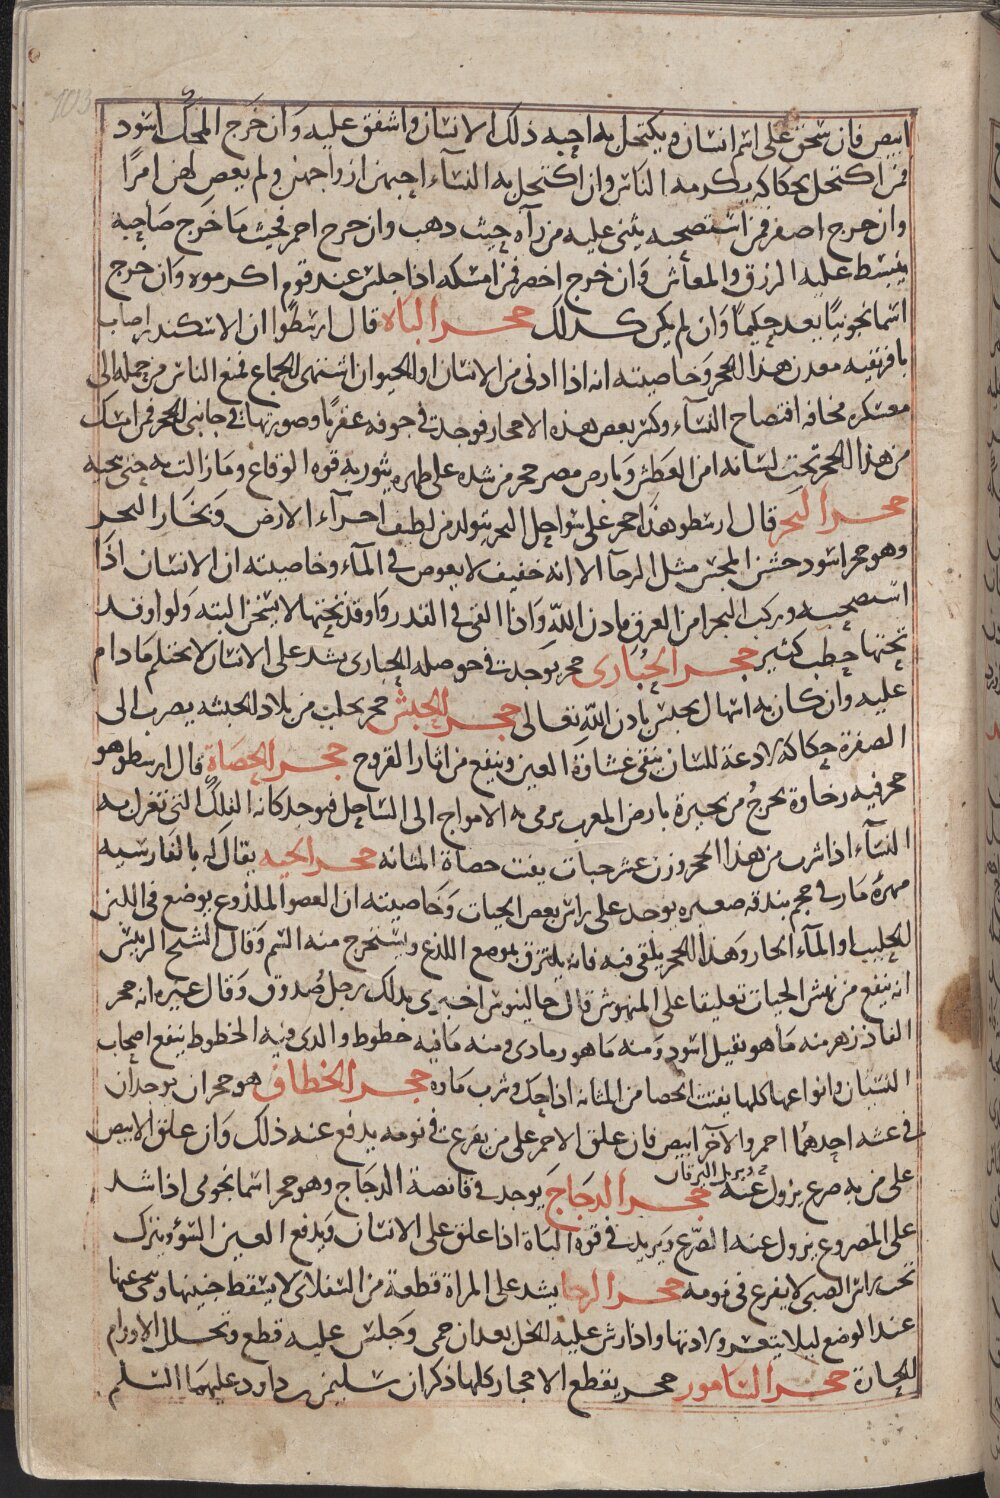 ابيض فان سحق على اسم انسان ويكتحل به احبه ذلك الانسان واشفق عليه وان خرج المحك اسود
فمن اكتحل بحكاكه يكرمه الناس وان اكتحل به النساء احبهن ازواجهن ولم يعص لهن امرا
وان خرج اصفر فمن استصحبه يثنى عليه من رآه حيث دهب وان خرج احمر فحيث ما خرج صاحبه
ينبسط عليه الرزق والمعاش وان خرج اخضر فمن امسكه اذا جلس عند قوم اكرموه وان خرج
اسمانجونيا يعد حكيما وان لم يكن كدلك حجر الباه قال ارسطوا ان الاسكندر اصاب
بافريقيه معدن هذا الحجر وخاصيته انه اذا ادنى من الانسان او الحيوان اشتهى الجماع فمنع الناس من حمله الى
معسكره مخافه افتضاح النساء وكسر بعض هذه الاحجار فوجدت في جوفه عقربا وصورتها في جانبى الحجر فمن امسك
من هذا الحجر تحت لسانه امن العطش وبارض مصر حجر من شده على ظهره يثور به قوه الوقاع وما زالت به حتى ينحيه
حجر البحر قال ارسطو هذا حجر على سواحل البحر يتولد من لطيف اجزاء الارض وبخار البحر
وهو حجر اسود خشن المجس مثل الرحا الا انه خفيف لا يغوص في الماء وخاصيته ان الانسان اذا
استصحبه وركب البحر امن الغرق بادن الله واذا القى في القدر واوقد تحتها لا يسخن البته ولو اوقد
تحتها حطب كثير حجر الحبارى حجر يوجدت في حوصله الحبارى يشد على الانسان لا يحتلم ما دام
عليه وان كان به اسهال يحبس باذن الله تعالى حجر الحبش حجر يجلب من بلاد الحبشه يضرب الى
الصفرة حكاكه لادعة للسان ينقى غشاوة العين وينفع من اثار القروح حجر الحصاة قال ارسطو هو
حجر فيه رخاوة يخرج من بحيرة بارض المغرب يرمى به الامواج الى الساحل فيوجد كانه الفلك التى تغزل به
النساء اذا شرب من هذا الحجر وزن عشر حبات يفت حصاة المثانه حجر الحيه يقال له بالفارسيه
مهرهٔ مار في حجم بندقه صغيره يوجد على راس بعض الحيات وخاصيته ان العضو الملدوغ يوضع في اللبن
الحليب او الماء الحار وهذا الحجر يلقى فيه فانه يلتزق بموضع اللدغ ويستخرج منه السم وقال الشيخ الرئيس
انه ينفع من نهش الحيات تعليقا على المنهوش قال جالينوس اخبرنى بدلك رجل صدوق وقال غيره انه حجر
الفاذزهر منه ما هو ثقيل اسود ومنه ما هو رمادى ومنه ما فيه خطوط والدى فيه الخطوط ينفع اصحاب
النسيان وانواعها كلها يفتت الحصا من المثانه اذا حك وشرب ماؤه حجر الخطاف هو حجران يوجدان
في عشه احدهما احمر والآخر ابيض فان علق الاحمر على من يفزع في نومه يدفع عنه ذلك وان علق الابيض
على من به صرع يزول عنه ويزيل اليرقان حجر الدجاج يوجد في قانصة الدجاج وهو حجر اسمانجونى اذا شد
على المصروع يزول عنه الصرع ويزيد في قوة الباة اذا علق على الانسان ويدفع العين السوء ويترك
تحت راس الصبى لا يفزع في نومه حجر الرحا يشد على المراة قطعة من السفلانى لا يسقط جنينها وينحى عنها
عند الوضع ليلا يتعسر ولادتها واذا رش عليه الخل بعد ان حمى وجلس عليه قطع وتحلل الاورام
الحارة حجر السامور حجر يقطع الاحجار كلها ذكر ان سليمن بن داود عليهما السلم